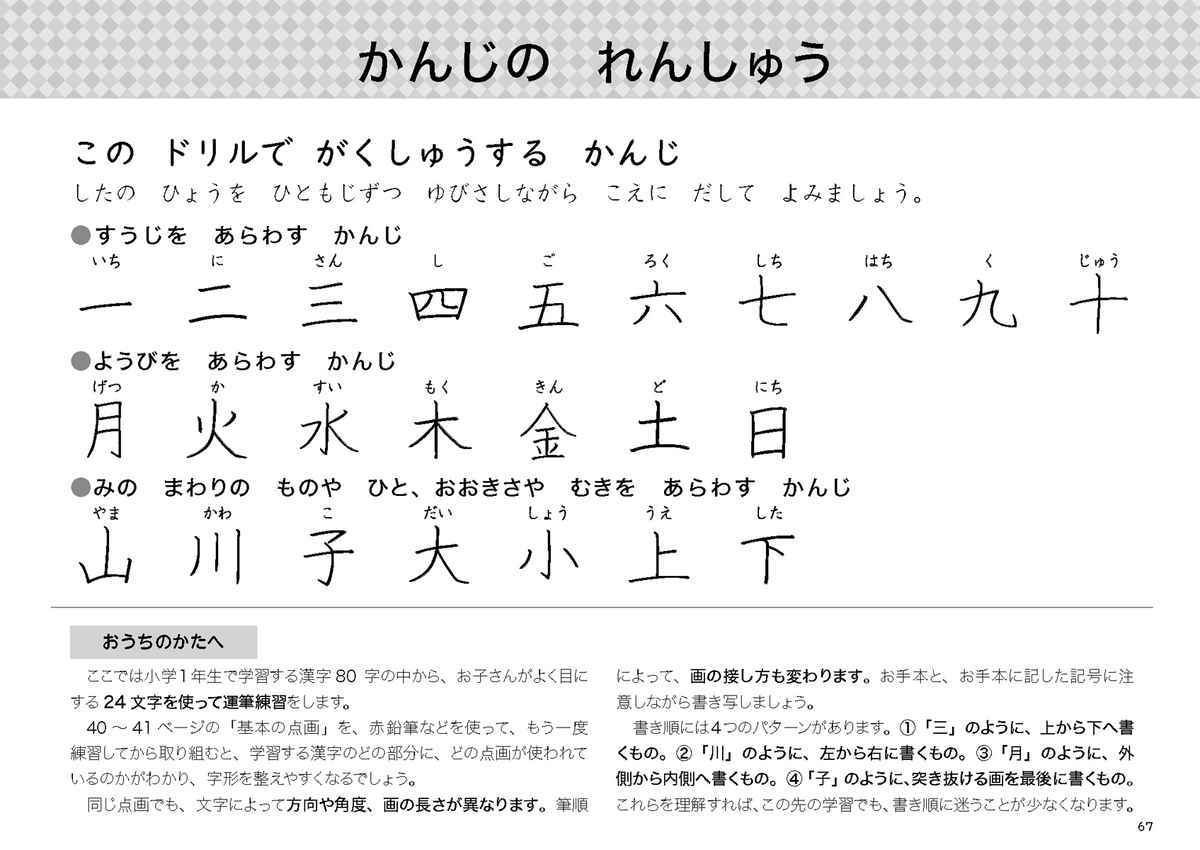 かんじの　れんしゅう
この　ドリルで　がくしゅうする　かんじ
したの　ひょうを　ひともじずつ　ゆびさしながら　こえに　だして　よみましょう。
●すうじを　あらわす　かんじ
いち　に　さん　し　ご　ろく　しち　はち　く　じゅう
一　二　三　四　五　六　七　八　九　十
●ようびを　あらわす　かんじ
げつ　か　すい　もく　きん　ど　にち
月　火　水　木　金　土　日
●みの　まわりの　ものや　ひと、おおきさや　むきを　あらわす　かんじ
やま　かわ　こ　だい　しょう　うえ　した
山　川　子　大　小　上　下
おうちのかたへ
　ここでは小学1年生で学習する漢字80字の中から、お子さんがよく目に
する24文字を使って運筆練習をします。
　40～41ページの「基本の点画」を、赤鉛筆などを使って、もう一度
練習してから取り組むと、学習する漢字のどの部分に、どの点画が使われて
いるのかがわかり、字形を整えやすくなるでしょう。
　同じ点画でも、文字によって方向や角度、画の長さが異なります。筆順
によって、画の接し方も変わります。お手本と、お手本に記した記号に注
意しながら書き写しましょう。
　書き順には4つのパターンがあります。①「三」のように、上から下へ書
くもの。②「川」のように、左から右に書くもの。③「月」のように、外
側から内側へ書くもの。④「子」のように、突き抜ける画を最後に書くもの。
これらを理解すれば、この先の学習でも、書き順に迷うことが少なくなります。
67